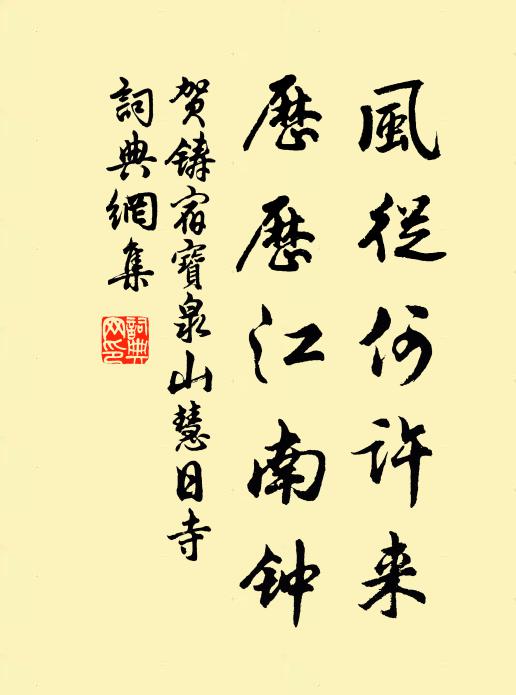 風從何許来
歷歷江南钟
贺鑄宿寶泉山慧日寺
詞典網集
詞典网印